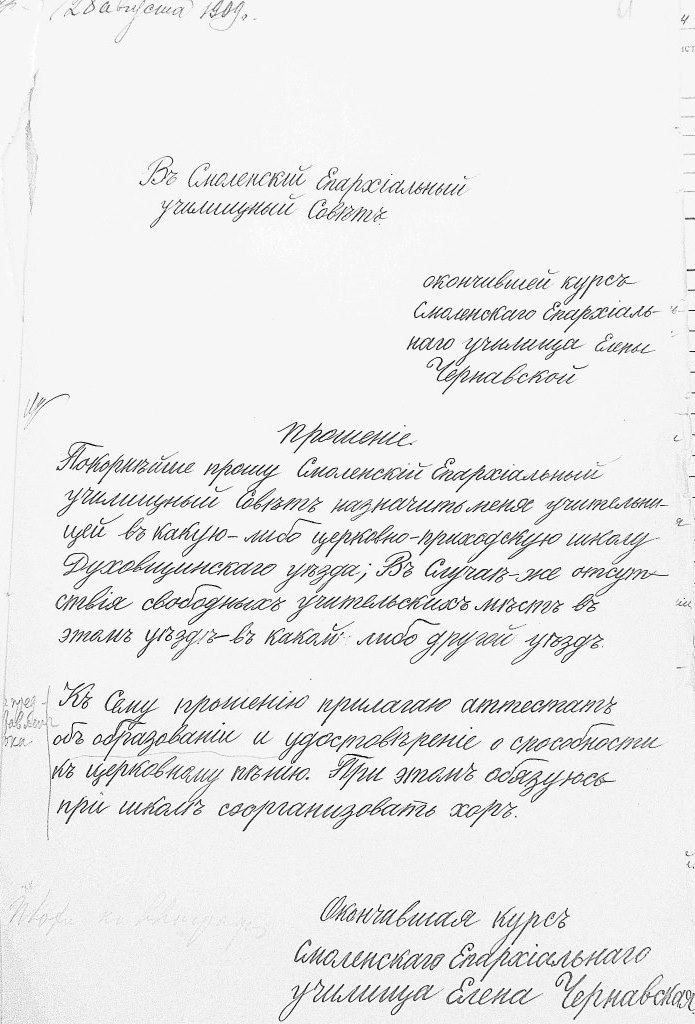 28 августа 1909 г.
Въ Смоленскій Епархіальный
училищный Совѣтъ.
окончившей курсъ
Смоленскаго Епархіаль-
наго училища Елены
Чернавской
Прошеніе.
Покорнѣйше прошу Смоленскій Епархіальный
училищный Совѣтъ назначить меня учительни-
цей въ какую-либо церковно-приходскую школу
Духовщинскаго уѣзда; Въ Случаѣ-же отсут-
ствія свободныхъ учительскихъ мѣстъ въ
этомъ уѣздѣ-въ какой либо другой уѣздъ.
Къ Сему прошенію прилагаю аттестатъ
объ образованіи и удостовѣреніе о способности
къ церковному пѣнію. При этомъ обязуюсь
при школѣ сорганизовать хоръ.
Окончившая курсъ
Смоленскаго Епархіальнаго
училища Елена Чернавская